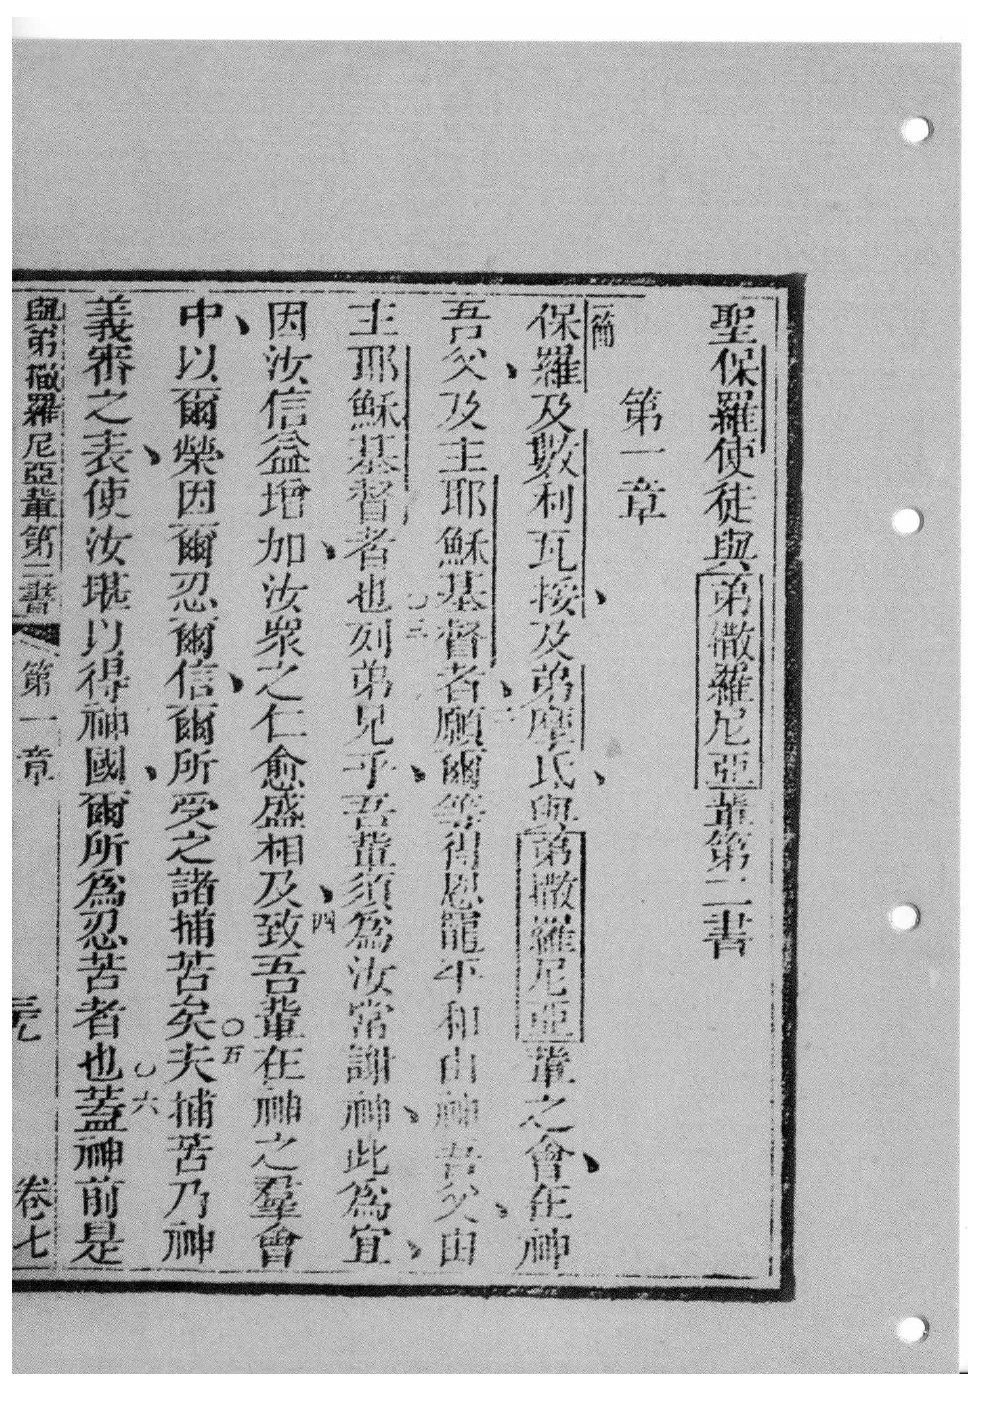 聖保羅使徒與弟撒羅尼亞輩第二書
第一章
一節保羅及數利瓦接、及弟摩氐、與弟撒羅尼亞輩之會、在神
吾父、及主耶穌基督者、二願爾等得恩寵平和由神吾父、由
主耶穌基督者也○三列弟兄乎、吾輩須爲汝常謝神、此爲宜、
因汝信益增加、汝眾之仁愈盛相及、四致吾輩在神之羣會
中、以爾榮因爾忍爾信、爾所受之諸捕苦矣○五夫捕苦乃神
義審之表、使汝堪以得神國、爾所爲忍苦者也○六蓋神前是
與弟撒羅尼亞輩第二書 第一章 卷七